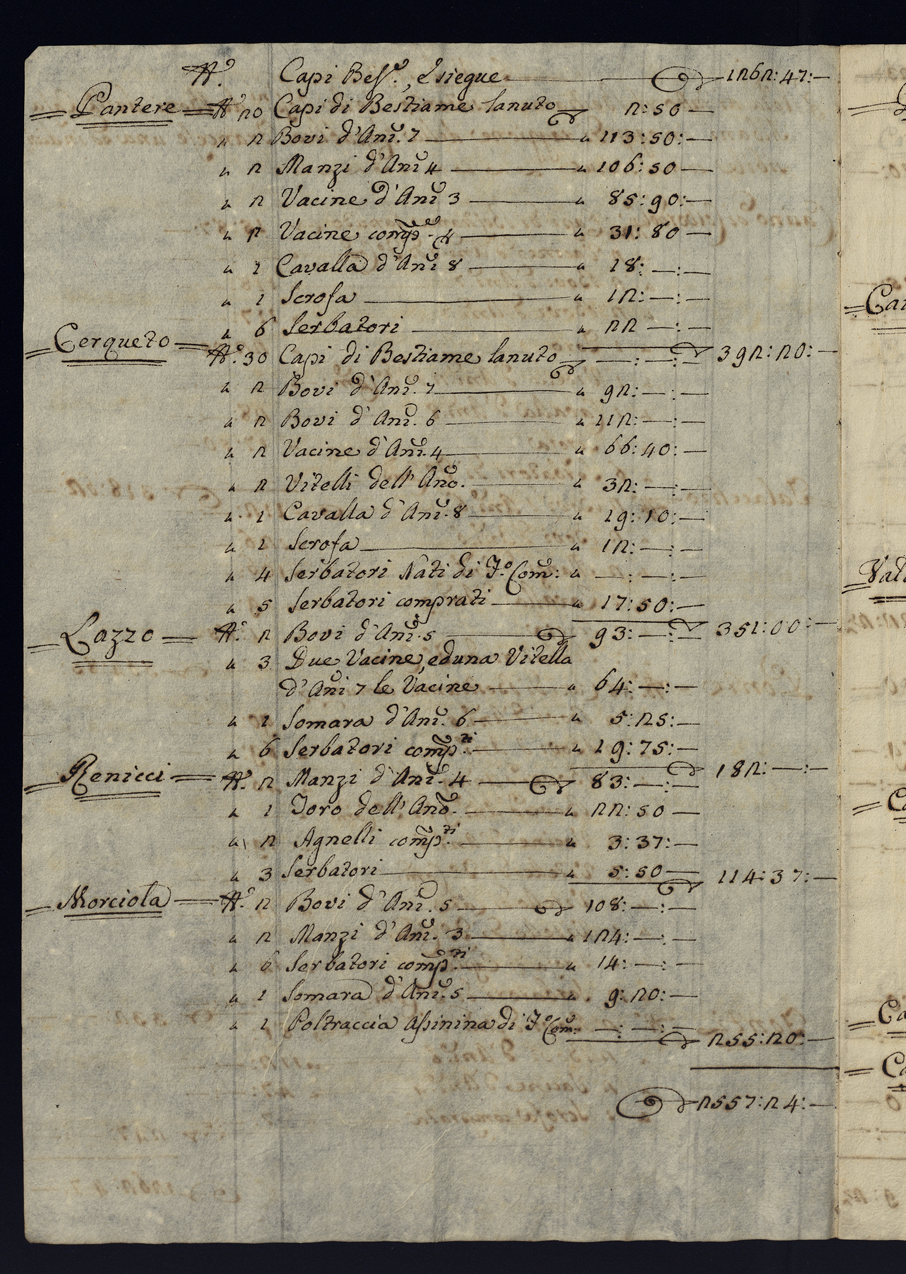 N.º Capi Bes.º, Esiegue 1262:47:—
Pantere N.º 20 Capi di Bestiame lanuto 2:50 —
a 2 Bovi d'Anĩ. 7 a 113:50:—
a 2 Manzi d'Anĩ 4 a 106:50
a 2 Vacine d'Anĩ 3 a 85:90:—
a 2 Vacine comp.e 4 a 31:80 —
a 1 Cavalla d'Anĩ 8 a 18:—:—
a 1 Scrofa a 12:—:—
a 6 Serbatori a 22 —:— 392:20:—
Cerqueto N.º 30 Capi di Bestiame lanuto —:—:—
a 2 Bovi d'Anĩ. 7 a 92:—:—
a 2 Bovi d'Anĩ. 6 a 112:—:—
a 2 Vacine d'Anĩ. 4 a 66:40:—
a 2 Vitelli dell'Anõ. a 32:—:—
a 1 Cavalla d'Anĩ. 8 a 19:10:—
a 1 Scrofa a 12:—:—
a 4 Serbatori Nati di Iº Com: a —:—:—
a 5 Serbatori comprati a 17:50:— 351:00:—
Lazzo N.º 2 Bovi d'Anĩ. 5 93:—:—
a 3 Due Vacine, ed una Vitella
d'Anĩ 7 le Vacine a 64:—:—
a 1 Somara d'Anĩ. 6 a 5:25:—
a 6 Serbatori comp.ti a 19:75:— 182:—:—
Renicci N.º 2 Manzi d'Anĩ. 4 83:—:—
a 1 Toro dell'Anõ. a 22:50
a 2 Agnelli comp.ti a 3:37:—
a 3 Serbatori a 5:50 — 114:37:—
Morciola N.º 2 Bovi d'Anĩ. 5 108:—:—
a 2 Manzi d'Anĩ. 3 a 124:—:—
a 6 Serbatori comp.ti a 14:—:—
a 1 Somara d'Anĩ. 5 a 9:20:—
a 1 Poltraccia Assinina di Iº Com: —:—:— 255:20:—
2557:24:—